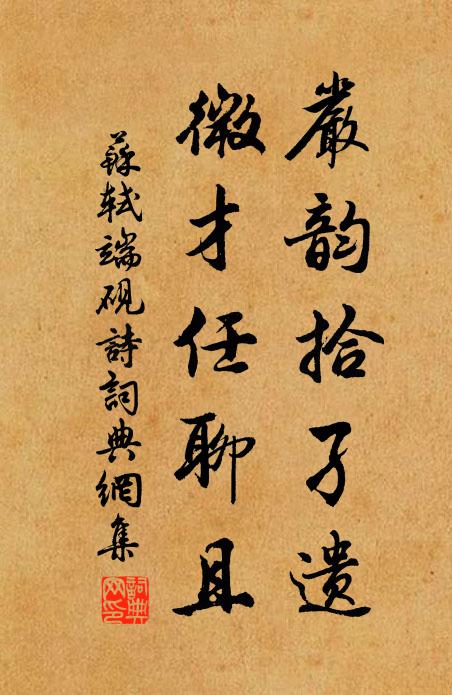 嚴韵拾孑遺
微才任聊且
蘇軾端硯詩詞典網集
詞典
网印